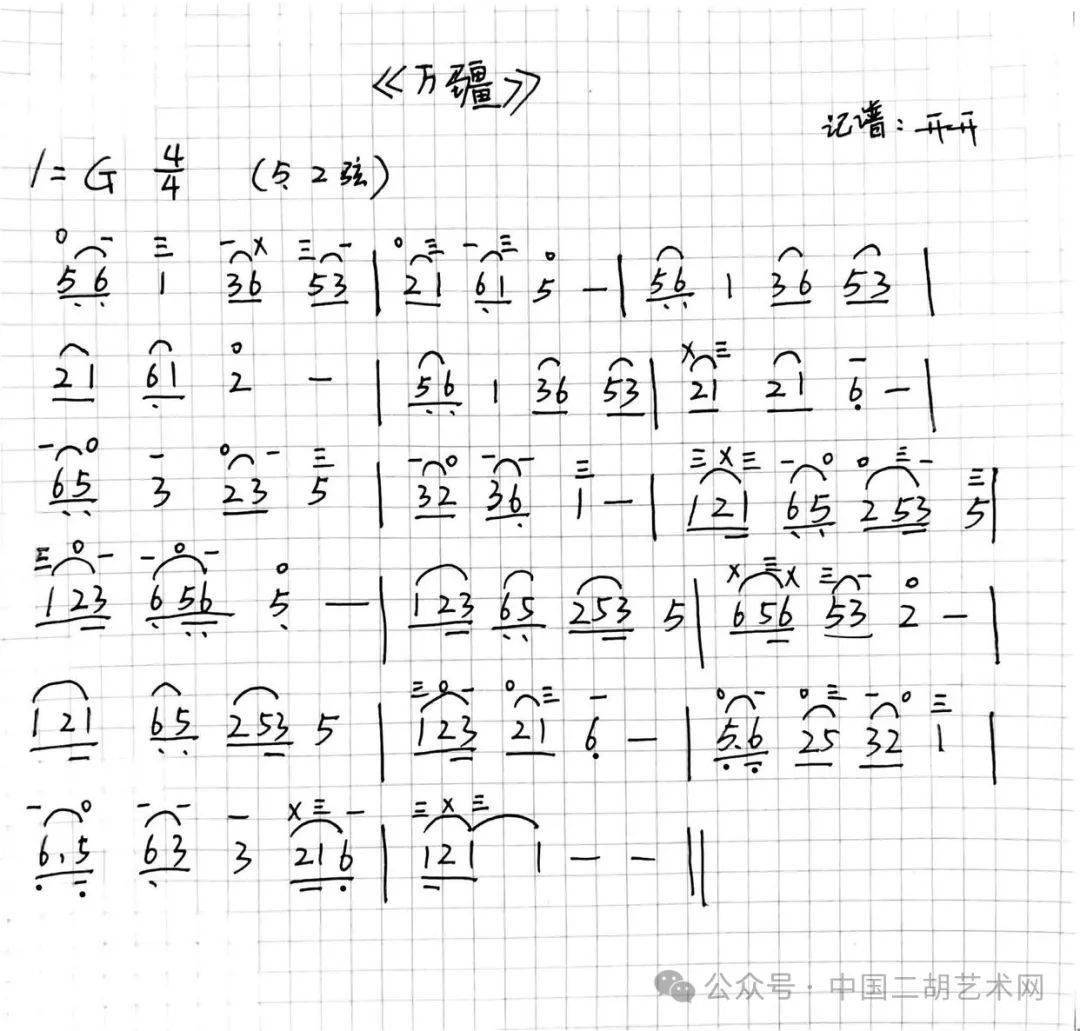 《万疆》
记谱：开开
1=G 4/4 (5̣ 2弦)
○ － 三 － X 三 － ○ 三 － 三 ○
5̣6̣ 1 36 53 | 21 6̣1 5 － | 5̣6̣ 1 36 53 |
○ X 三 －
21 6̣1 2 － | 5̣6̣ 1 36 53 | 21 21 6̣ － |
－ ○ － ○ － 三 － ○ － － 三 三 X 三 － ○ ○ 三 － 三
6̣5̣ 3 23 5 | 32 36̣ 1 － | 121 6̣5̣ 253 5 |
三 ○ － － ○ － ○ X 三 X 三 － ○
123 6̣5̣6̣ 5̣ － | 123 6̣5̣ 253 5 | 656 53 2 － |
三 ○ － ○ 三 － ○ － ○ 三 － ○ 三
121 6̣5̣ 253 5 | 123 21 6̣ － | 5̣.6̣ 25 32 1 |
－ ○ － － － X 三 － 三 X 三
6̣.5̣ 6̣3 3 216̣ | 121 1 － － ‖
公众号·中国二胡艺术网